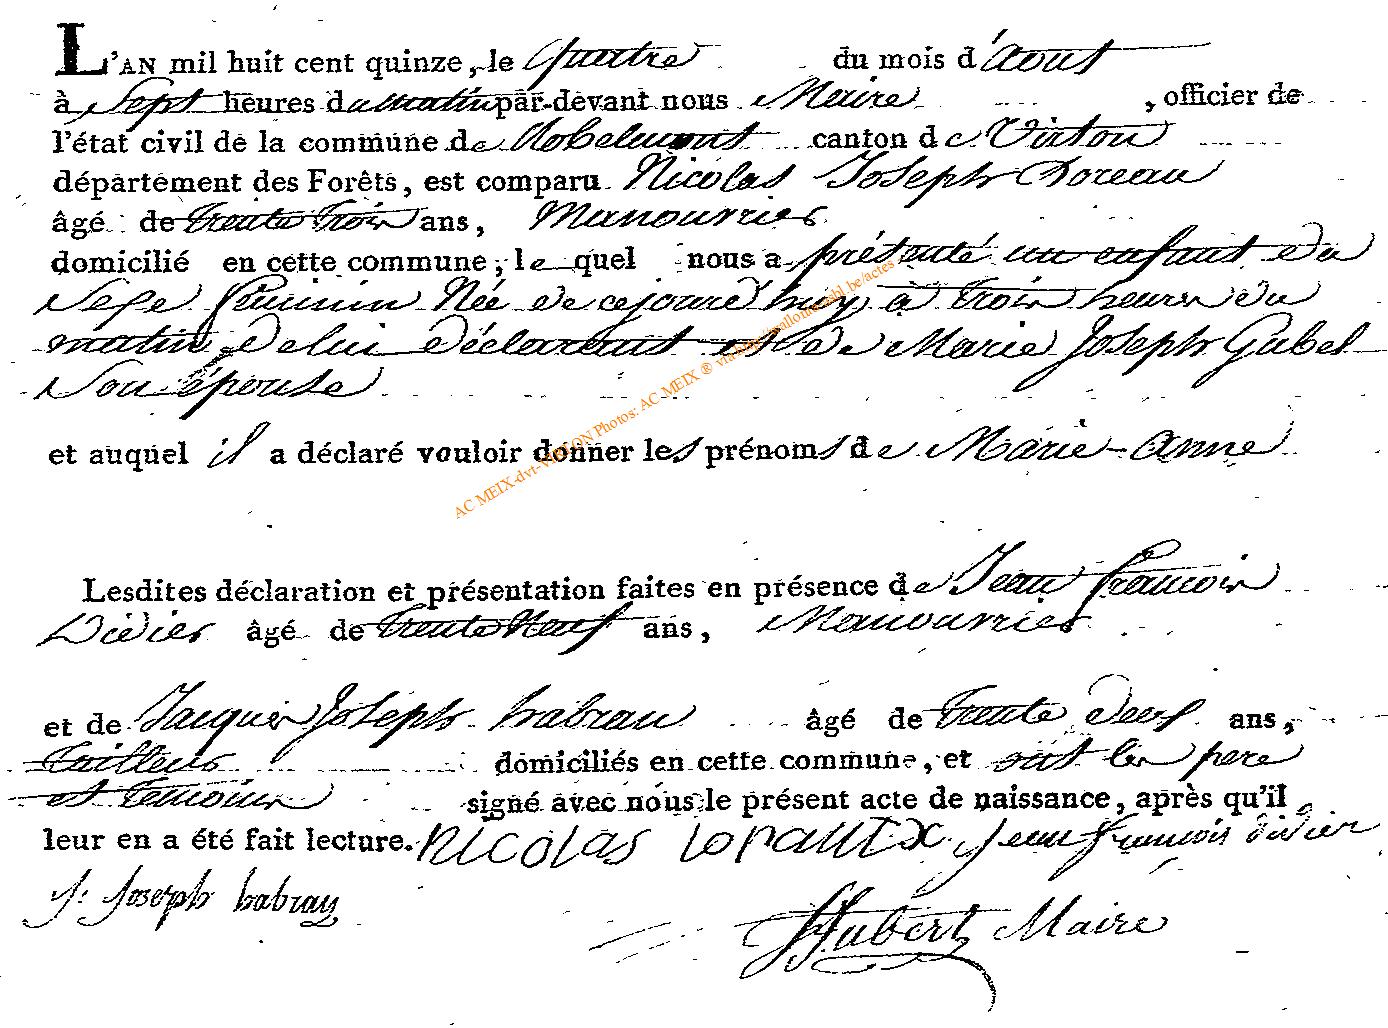 L'AN mil huit cent quinze, le Quatre du mois d'Aout
à Sept heures du matin par-devant nous Maire , officier de
l'état civil de la commune de Robelmont canton de Virton
département des Forêts, est comparu Nicolas Joseph Loreau
âgé de trente trois ans, Manouvrier
domicilié en cette commune, le quel nous a présenté un enfant du
Sexe féminin Née de cejourd'huy à trois heures du
matin de lui déclarant et de Marie Joseph Gabel
Son épouse
et auquel il a déclaré vouloir donner les prénoms de Marie-Anne
Lesdites déclaration et présentation faites en présence de Jean François
Didier âgé de trente Neuf ans, Manouvrier
et de Jacques Joseph habran âgé de trente deux ans,
tailleur domiciliés en cette commune, et ont les pere
et temoins signé avec nous le présent acte de naissance, après qu'il
leur en a été fait lecture. NICOLAS LORAUX Jean françois didier
J: Joseph habray
H Hubert Maire
AC MEIX-dvt-VIRTON Photos: AC MEIX ® via